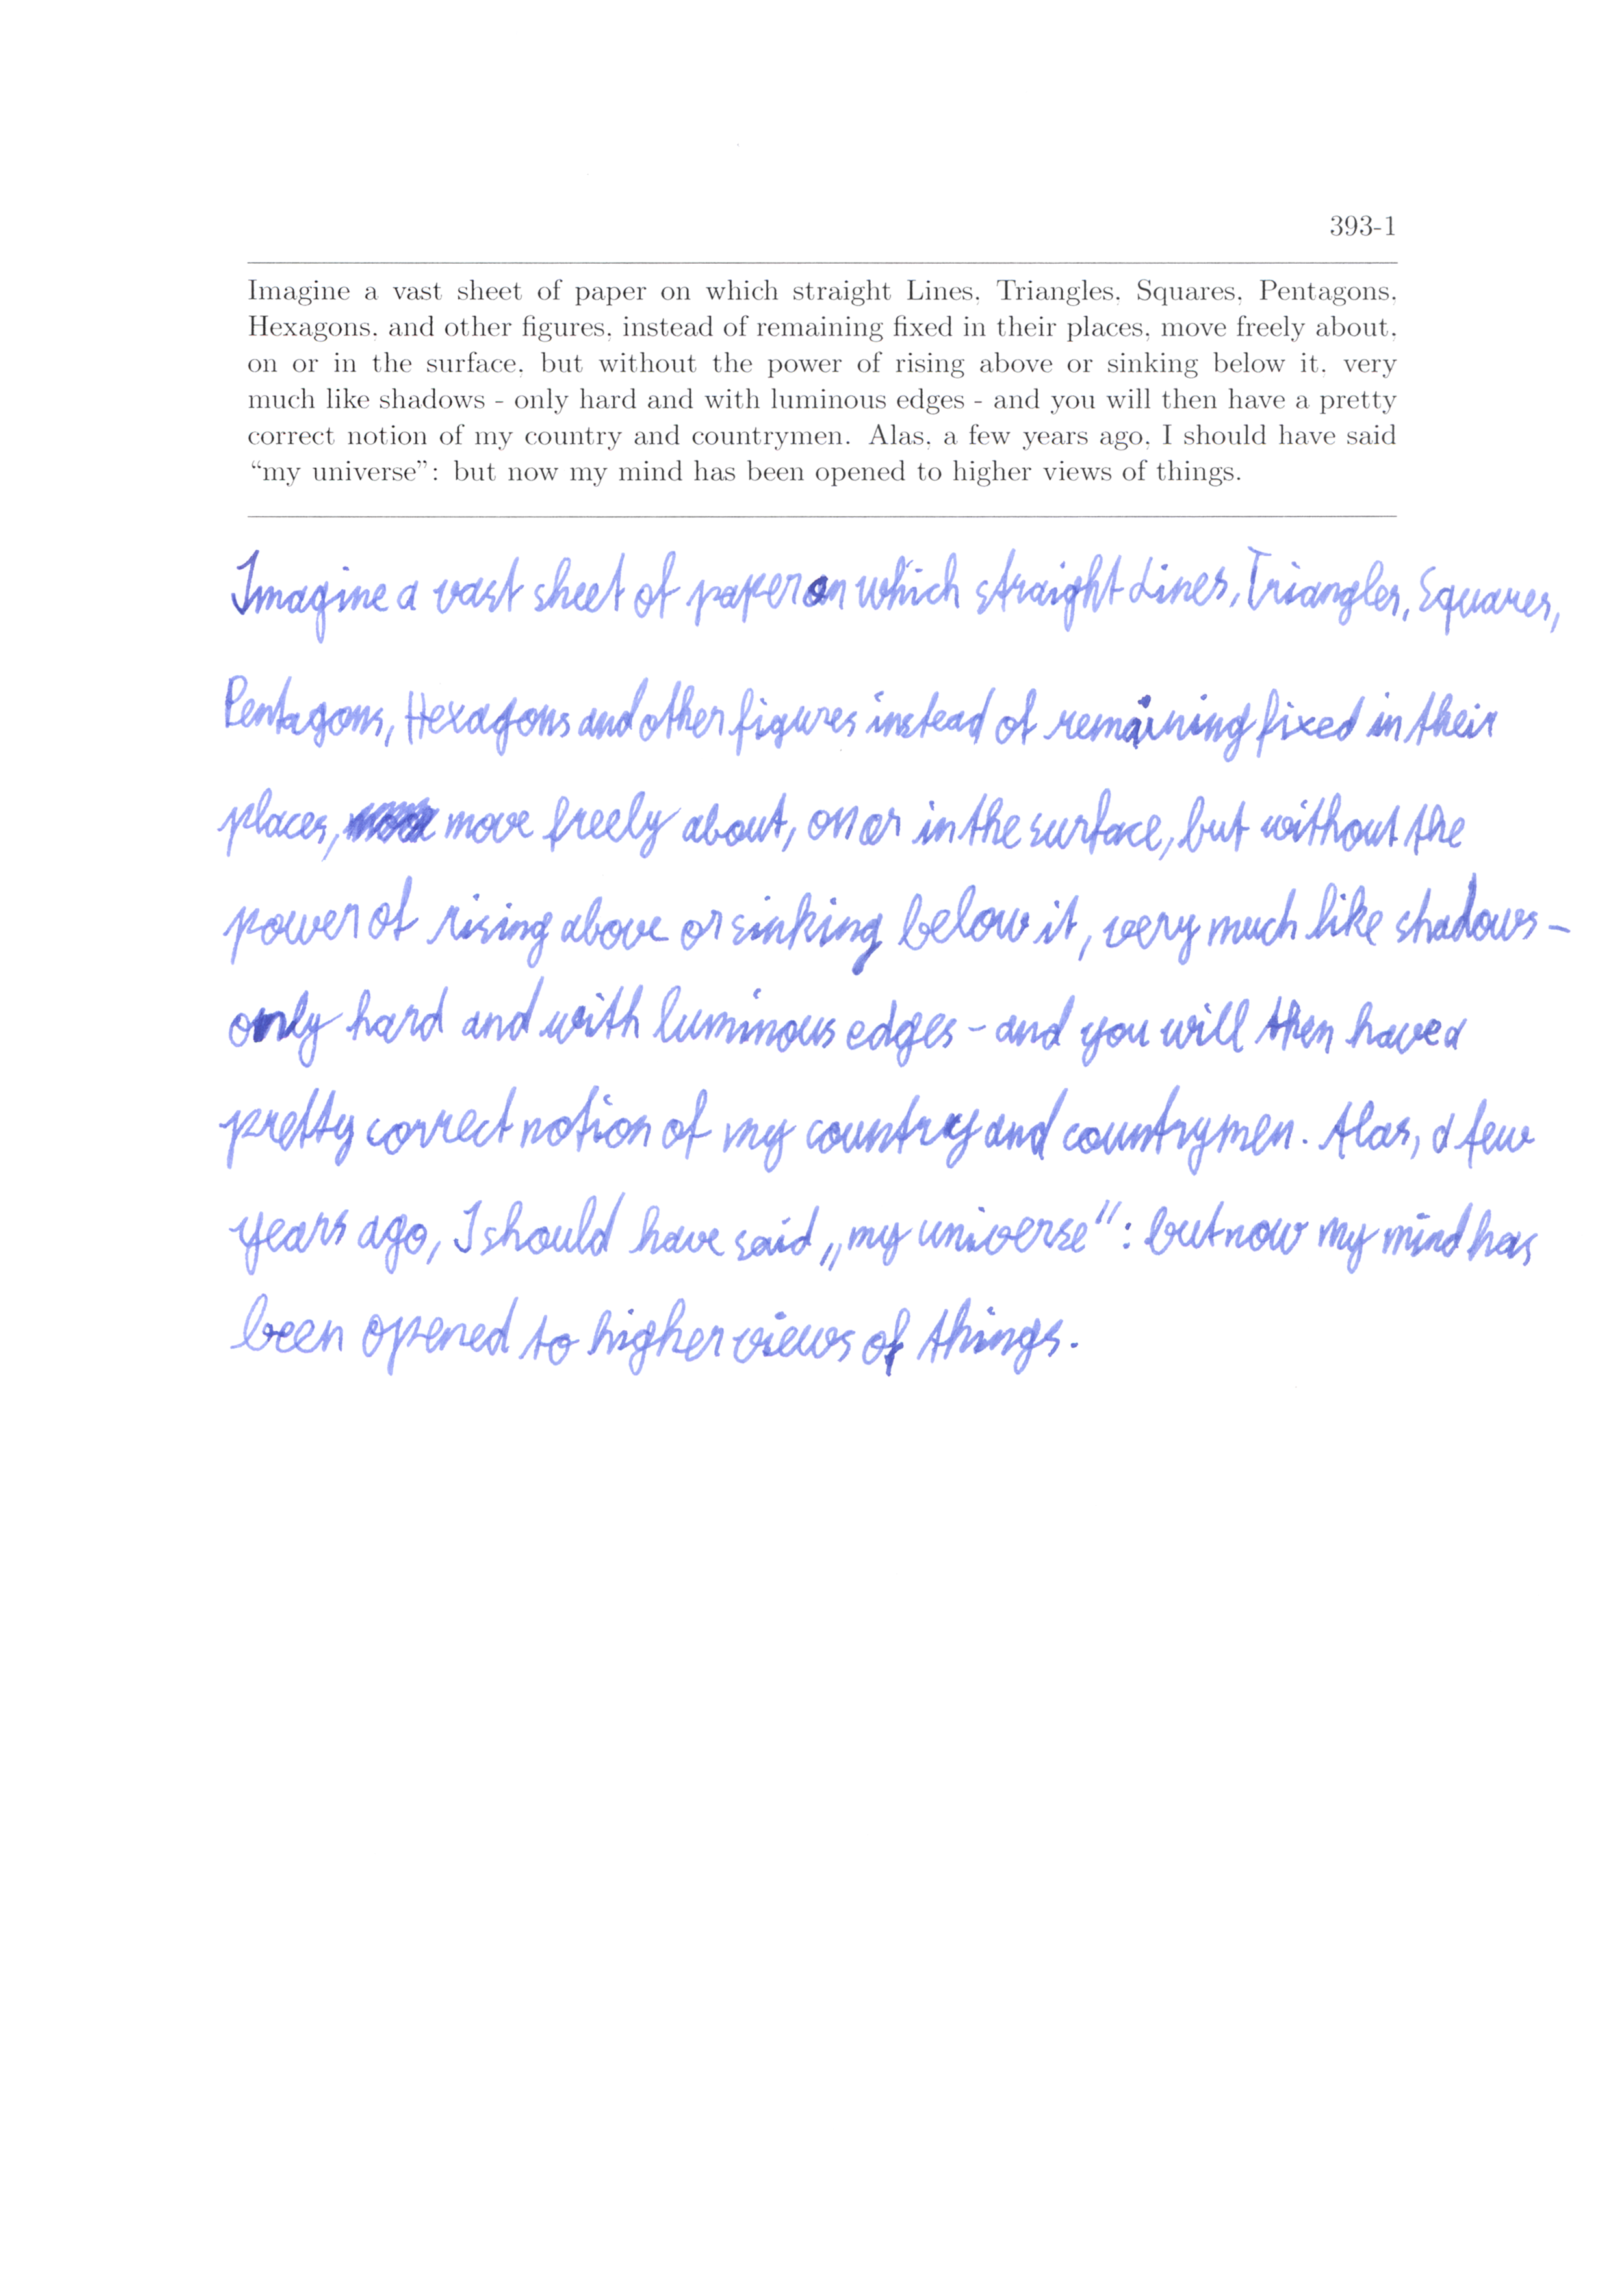 393-1
Imagine a vast sheet of paper on which straight Lines, Triangles, Squares, Pentagons,
Hexagons, and other figures, instead of remaining fixed in their places, move freely about,
on or in the surface, but without the power of rising above or sinking below it, very
much like shadows - only hard and with luminous edges - and you will then have a pretty
correct notion of my country and countrymen. Alas, a few years ago, I should have said
“my universe”: but now my mind has been opened to higher views of things.
Imagine a vast sheet of paper on which straight Lines, Triangles, Squares,
Pentagons, Hexagons and other figures instead of remaining fixed in their
places, move freely about, on or in the surface, but without the
power of rising above or sinking below it, very much like shadows -
only hard and with luminous edges - and you will then have a
pretty correct notion of my country and countrymen. Alas, a few
years ago, I should have said „my universe": but now my mind has
been opened to higher views of things.